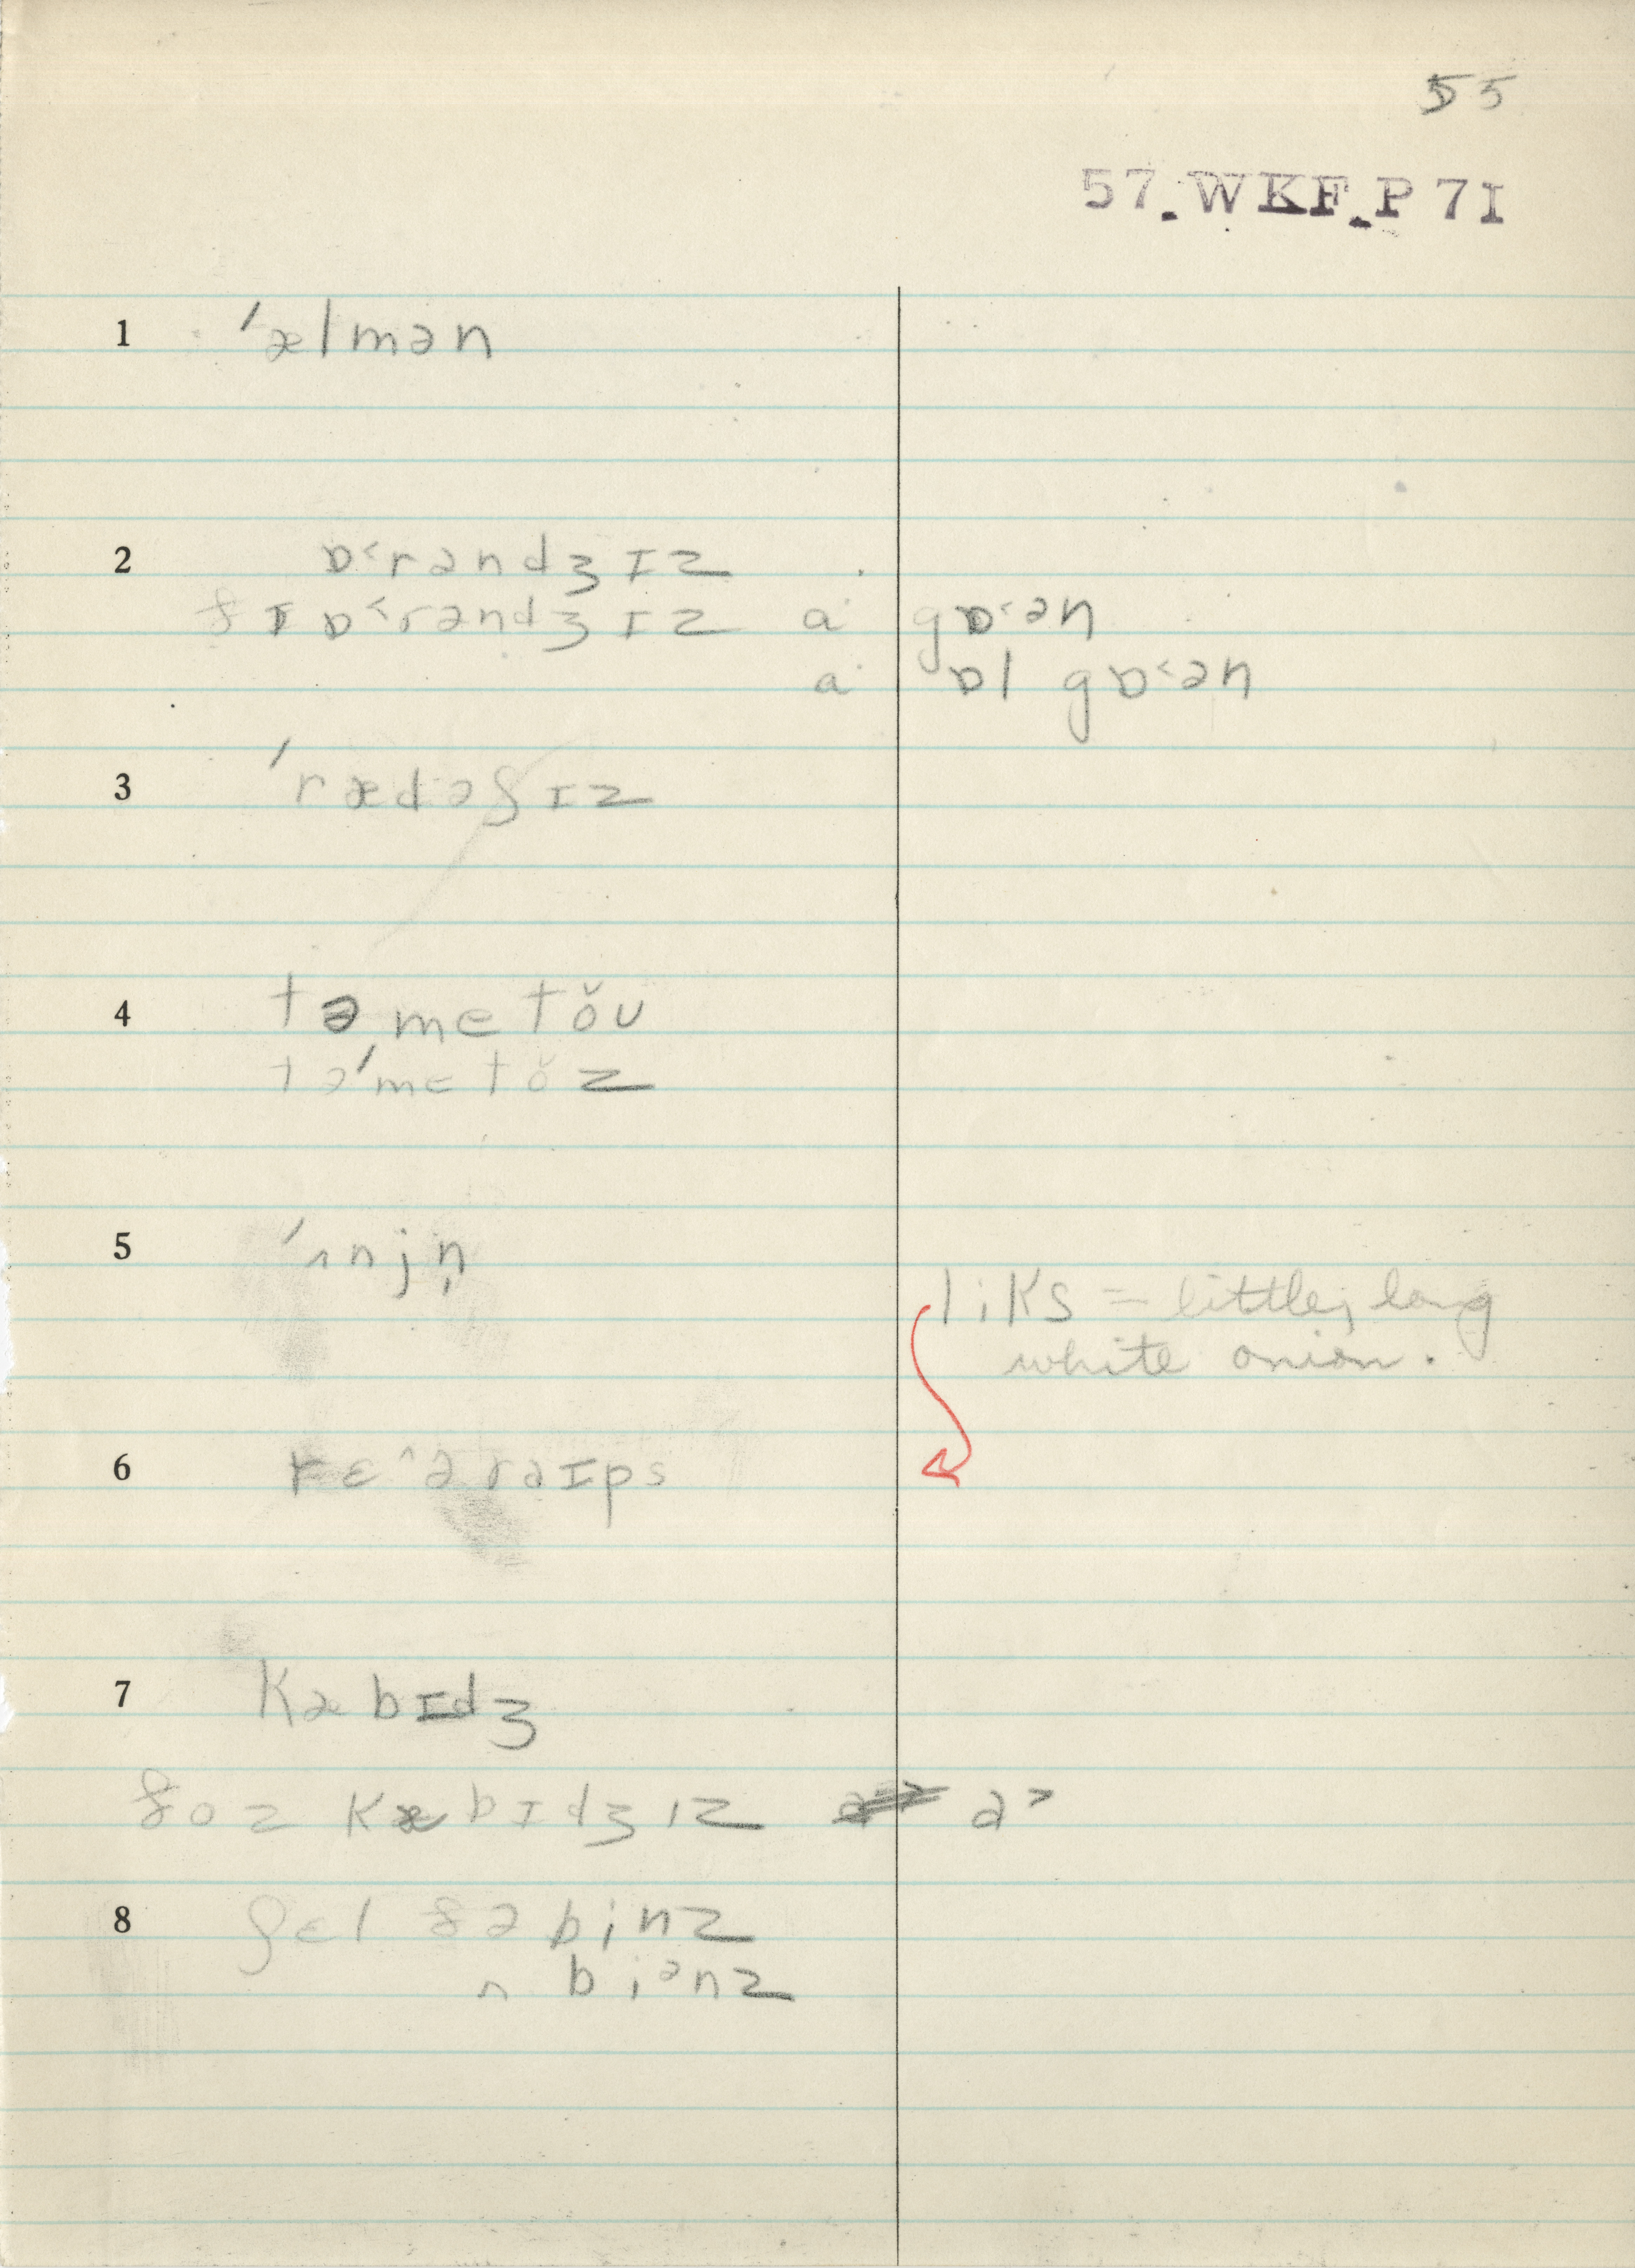 55
57.WKF.P 71
1 ˈælmən
2 ɒ˂rəndʒɪz
ðɪ ɒ˂rəndʒɪz aˑ gɒ˂ən
aˑ ɒl gɒ˂ən
3 ˈrædəʃɪz
4 təˌmetŏʊ
təˈmetŏz
5 ˈʌnjn̩
liks = little, long
white onion.
6 rɛ^əraɪps
7 kæbɪdʒ
ðoz kæbɪdʒɪz ə˃
8 ʃɛl ðə binz
ʌ biᵊnz